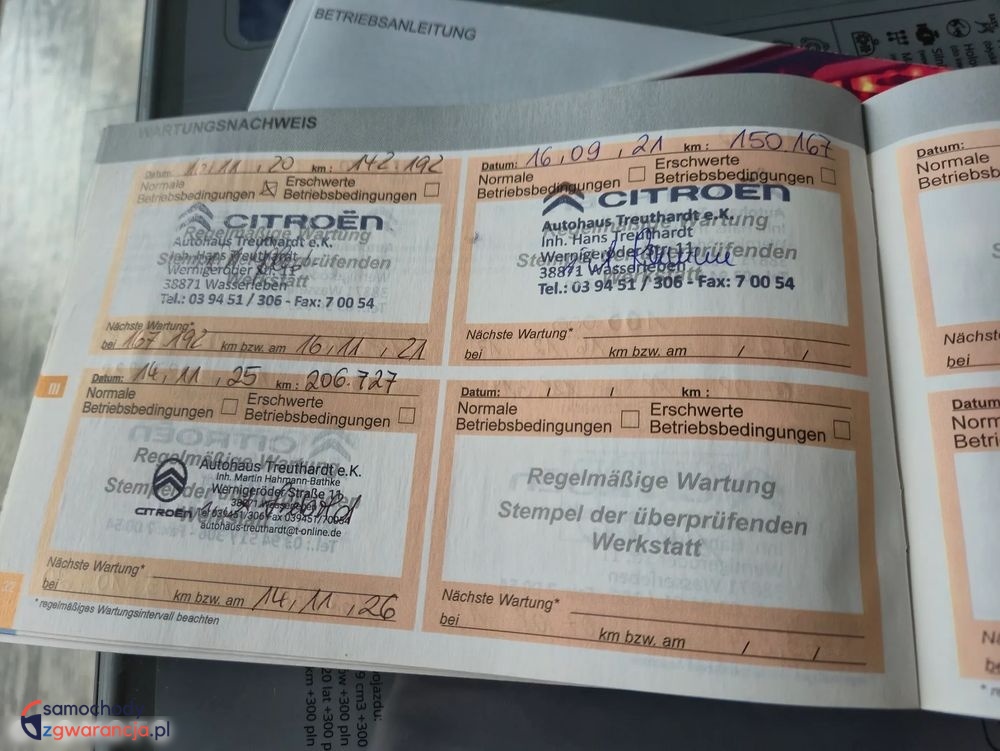 BETRIEBSANLEITUNG
WARTUNGSNACHWEIS
Datum: 11, 20 km: 142.192
Normale Betriebsbedingungen
Erschwerte Betriebsbedingungen
CITROËN
Regelmäßige Wartung
Autohaus Treuthardt e.K.
Inh. Hans Treuthardt
Stempel der überprüfenden
Wernigeröder Str. 11
Werkstatt
38871 Wasserleben
Tel.: 03 94 51 / 306 - Fax: 7 00 54
Nächste Wartung*
bei 167 192 km bzw. am 16, 11, 21
Datum: 16, 09, 21 km: 150 167
Normale Betriebsbedingungen
Erschwerte Betriebsbedingungen
CITROËN
Autohaus Treuthardt e.K.
Regelmäßige Wartung
Inh. Hans Treuthardt
Wernigeröder Str. 11
38871 Wasserleben
Werkstatt
Tel.: 03 94 51 / 306 - Fax: 7 00 54
Nächste Wartung*
bei km bzw. am / /
III
Datum: 14, 11, 25 km: 206.727
Normale Betriebsbedingungen
Erschwerte Betriebsbedingungen
Regelmäßige Wartung
Autohaus Treuthardt e.K.
Inh. Martin Hahmann-Bathke
Wernigeröder Straße 11
38871 Wasserleben
CITROËN
Tel 039451/306 Fax 039451/70054
autohaus-treuthardt@t-online.de
Nächste Wartung*
bei km bzw. am 14, 11, 26
* regelmäßiges Wartungsintervall beachten
Datum: / / km:
Normale Betriebsbedingungen
Erschwerte Betriebsbedingungen
Regelmäßige Wartung
Stempel der überprüfenden
Werkstatt
Nächste Wartung*
bei km bzw. am / /
Datum:
Normale
Nächste
bei
Datum
22
pojazdu:
9 cm3 +300
20 lat +300
km +300 pln
samochody
zgwarancja.pl